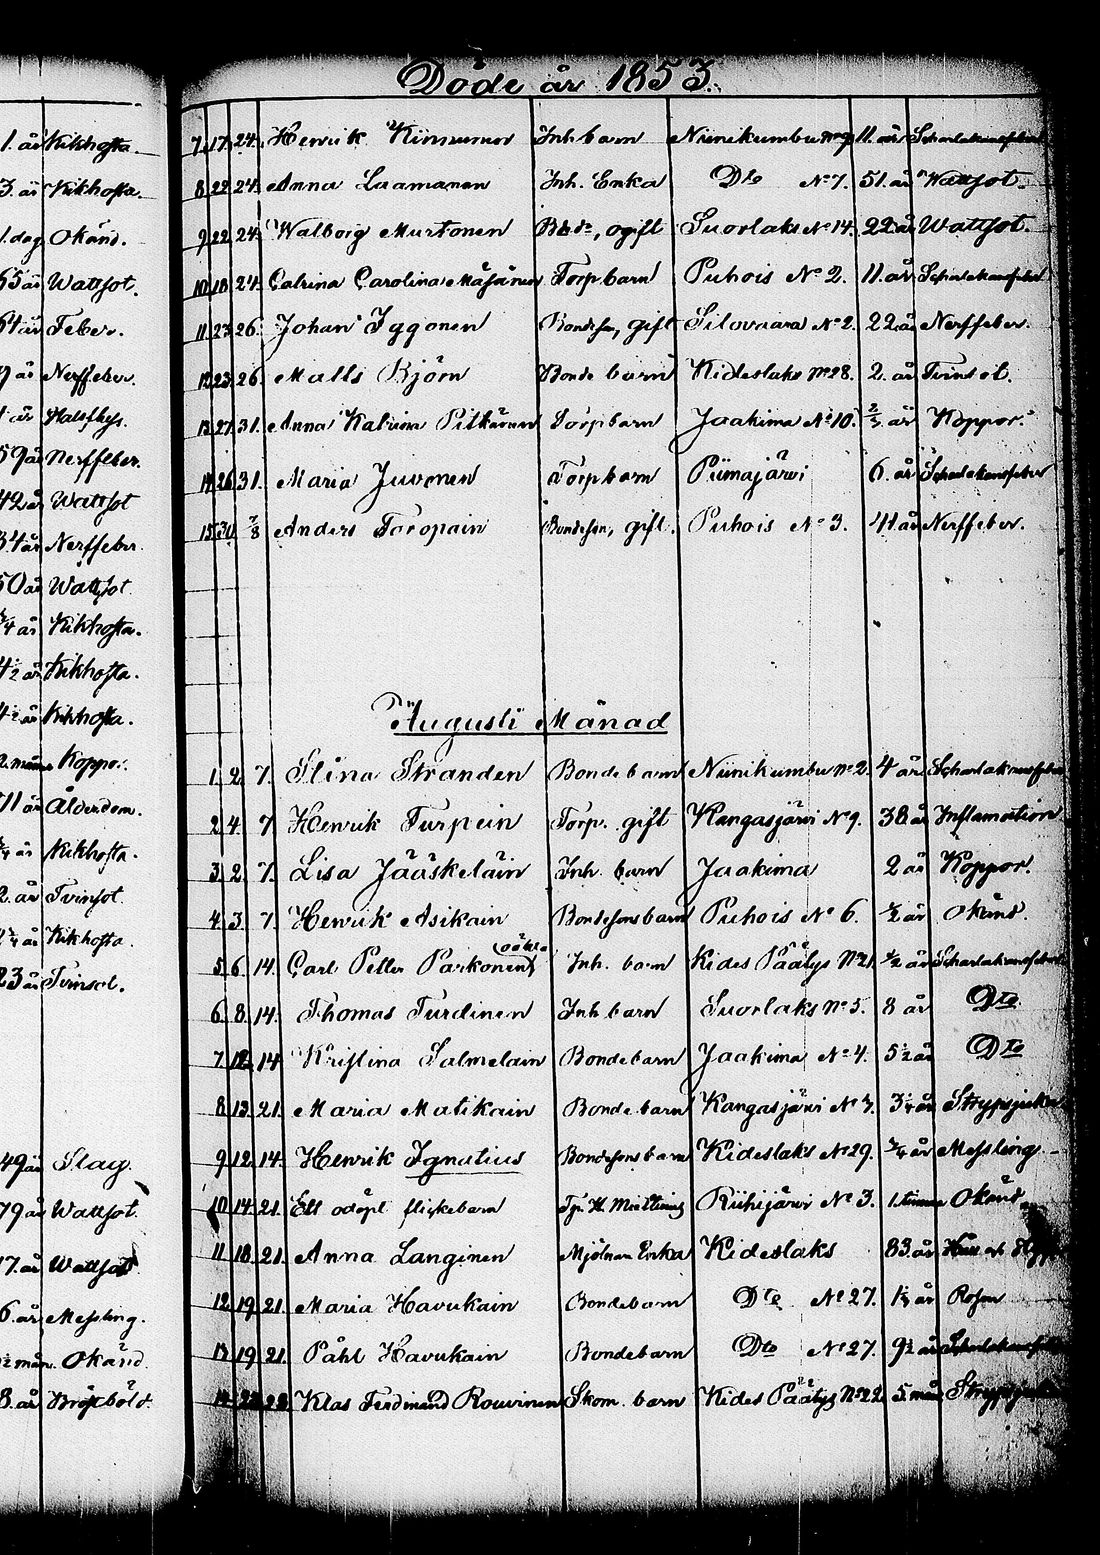 Döde år 1853.
1. år Kikhosta.
3. år Kikhosta.
1. dag Okänd.
65 år Wattsot.
64 år Feber.
9 år Nerffeber.
1 år Halsflyss.
59 år Nerffeber.
42 år Wattsot
34 år Nerffeber.
50 år Wattsot.
3/4 år Kikhosta.
4 1/2 år Kikhosta.
4 1/2 år Kikhosta.
2. mån Koppor.
71 år Ålderdom.
1/4 år Kikhosta.
2. år Tvinsot.
1/4 år Kikhosta.
23 år Tvinsot.
49 år Slag.
79 år Wattsot.
17. år Wattsot
6. år Messling.
1/2 mån. Okänd.
8. år Bröstböld.
7. 17. 24. Henrik Kinnunen Inh. barn Niinikumbu No 9 11. år Scharlakansfeber
8. 22. 24. Anna Laamanen Inh. Enka Dto No 7. 51. år Wattsot.
9. 22. 24. Walborg Murtonen Bde, ogift Suorlaks No 14. 22 år Wattsot.
10. 18. 24. Catrina Carolina Torpbarn Puhois No 2. 11. år Scharlakansfeber
11. 23. 26. Johan Iggonen Bondeson, gift Silovaara No 2. 22. år Nerffeber.
12. 23. 26. Matts Björn Bonde barn Kideslaks No 28. 2. år Tvinsot.
13. 27. 31. Anna Katrina Pitkänen Torpbarn Jaakima No 10. 2/3 år Koppor.
14. 26. 31. Maria Juvonen Torpbarn Piimajärvi 6. år Scharlakansfeber
15. 30. 7/8 Anders Toropain Bondeson, gift. Puhois No 3. 41 år Nerffeber.
Augusti Månad
1. 2. 7. Stina Stranden Bondebarn Niinikumbu No 2. 4 år Scharlakansfeber
2. 4. 7 Henrik Turpein Torp. gift Kangasjärvi No 9. 38 år Inflamation
3. 2. 7. Lisa Jääskeläin Inh. barn Jaakima 2 år Koppor.
4. 3. 7. Henrik Asikain Bondesonsbarn Puhois No 6. 1/2 år Okänd.
5. 6. 14. Carl Petter Parkonen Inh. barn Kides Päätys No 21. 1/2 år Scharlakansfeber
6. 8. 14. Thomas Turdinen Inh. barn Suorlaks No 5. 8 år Dto
7. 12. 14. Kristina Salmelain Bondebarn Jaakima No 4. 5 1/2 år Dto
8. 13. 21. Maria Matikain Bondebarn Kangasjärvi No 7. 3 1/4 år Strypsjuka
9. 12. 14. Henrik Ignatius Bondesonsbarn Kideslaks No 29. 3/4 år Messling
10. 14. 21. Ett odöpt flickebarn Riihijärvi No 3. 1. timma Okänd
11. 18. 21. Anna Langinen Mjölnare Enka Kideslaks 83. år
12. 19. 21. Maria Havukain Bondebarn Dto No 27. 1 1/4 år Rosen
13. 19. 21. Påhl Havukain Bondebarn Dto No 27. 9 1/2 år Scharlakansfeber
14. 22. 28. Klas Ferdinand Rouvinen Skom. barn Kides Päätys No 22. 5. mån Strypsjuka